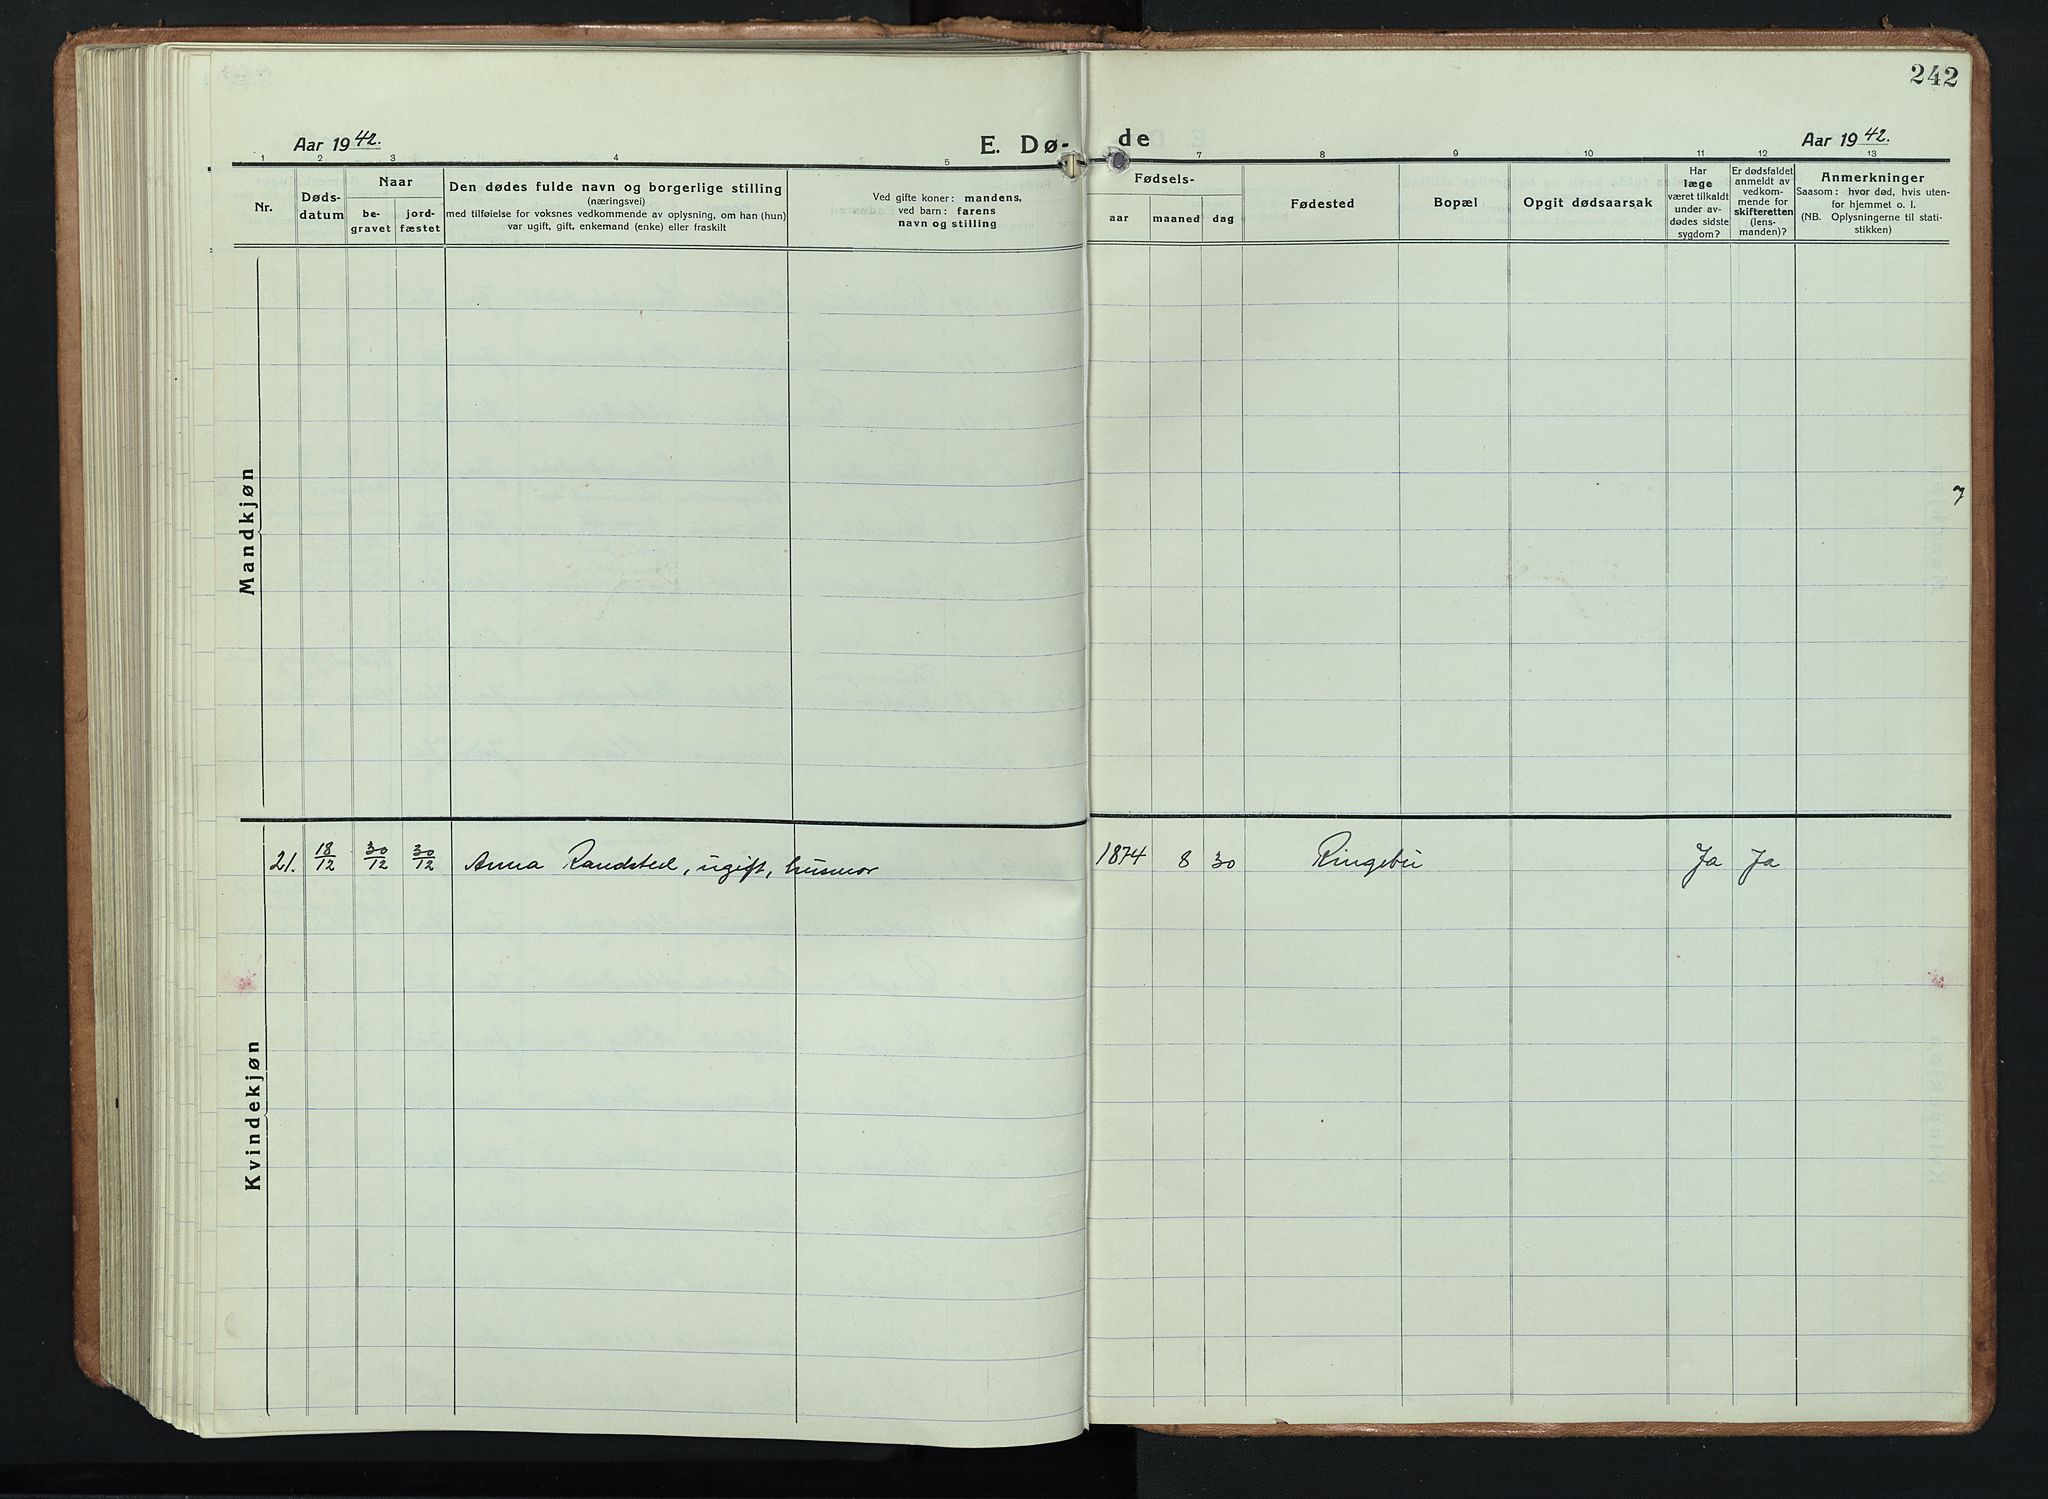 242
Aar 1942.
E. Dø-
de
Aar 1942.
1
2
3
4
5
7
8
9
10
11
12
13
Nr.
Døds-
datum
Naar
be-
gravet
jord-
fæstet
Den dødes fulde navn og borgerlige stilling
(næringsvei)
med tilføielse for voksnes vedkommende av oplysning, om han (hun)
var ugift, gift, enkemand (enke) eller fraskilt
Ved gifte koner: mandens,
ved barn: farens
navn og stilling
Fødsels-
aar
maaned
dag
Fødested
Bopæl
Opgit dødsaarsak
Har
læge
været tilkaldt
under av-
dødes sidste
sygdom?
Er dødsfaldet
anmeldt av
vedkom-
mende for
skifteretten
(lens-
manden)?
Anmerkninger
Saasom: hvor død, hvis uten-
for hjemmet o. l.
(NB. Oplysningerne til stati-
stikken)
Mandkjøn
Kvindekjøn
21. 18/12 30/12 30/12 Anna Randsted, ugift, husmor 1874 8 30 Ringebu Ja Ja